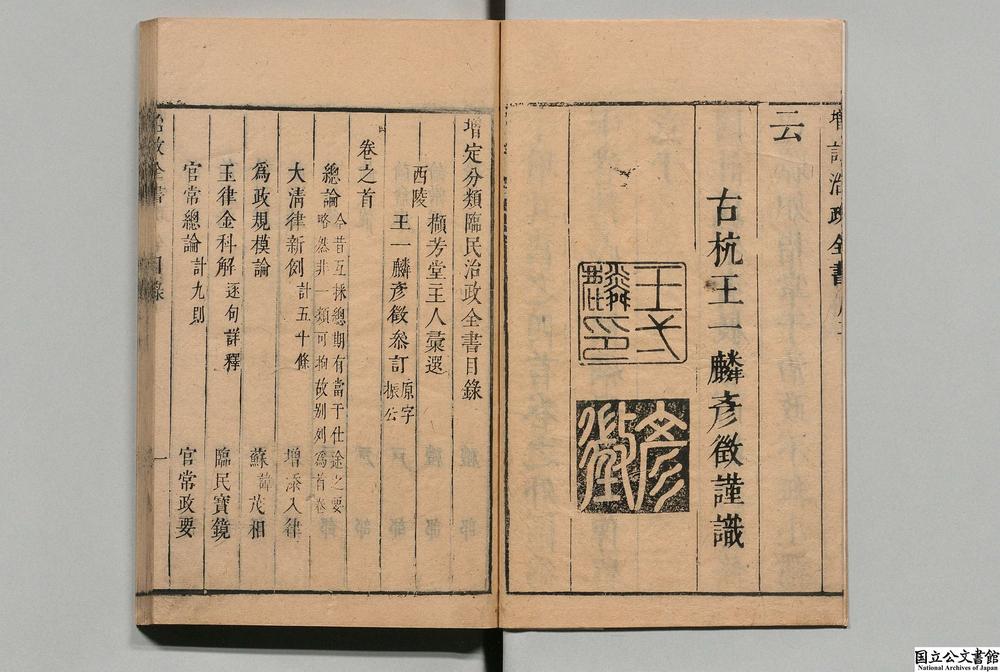 云
古杭王一麟彥徵謹識
王一
麟印
彥徵
增定分類臨民治政全書目錄
西陵
擷芳堂主人彙選
王一麟彥徵叅訂 原字振公
卷之首
總論 今昔互採總期有當于仕途之要
略然非一類可拘故别列爲首卷
大淸律新例 計五十條 增添入律
爲政規模論 蘇諱茂相
玉律金科解 逐句詳釋 臨民寶鏡
官常總論 計九則 官常政要
国立公文書館
National Archives of Japan